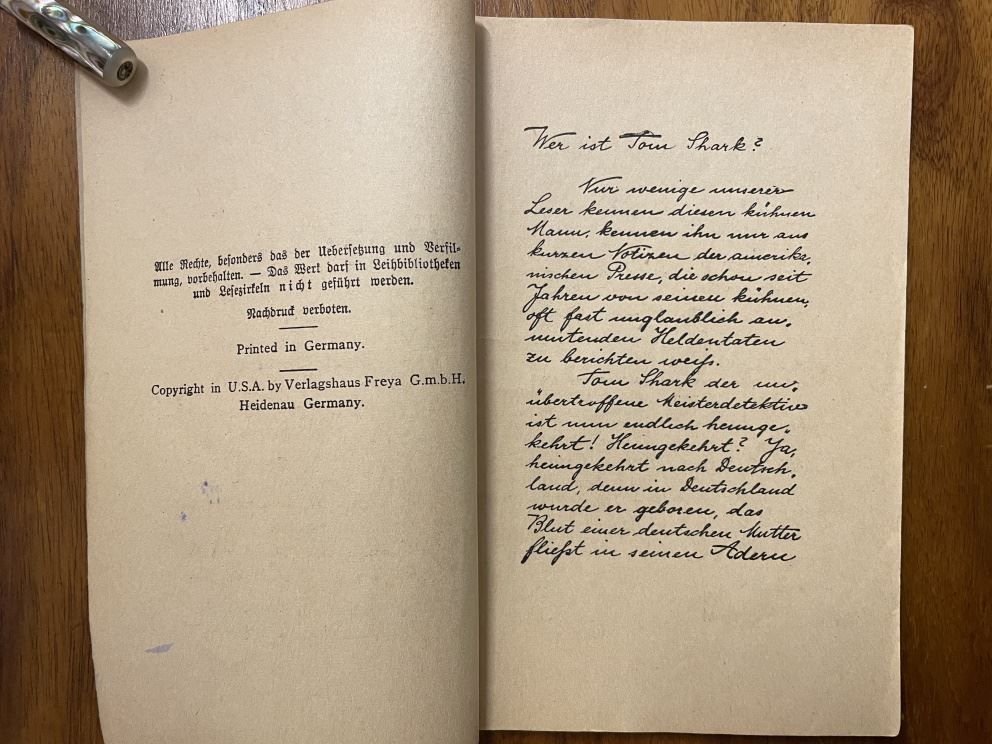 Alle Rechte, besonders das der Uebersetzung und Verfil-
mung, vorbehalten. — Das Werk darf in Leihbibliotheken
und Lesezirkeln nicht geführt werden.
Nachdruck verboten.
Printed in Germany.
Copyright in U.S.A. by Verlagshaus Freya G.m.b.H.
Heidenau Germany.
Wer ist Tom Shark?
Nur wenige unserer
Leser kennen diesen kühnen
Mann, kennen ihn nur aus
kurzen Notizen der amerika-
nischen Presse, die schon seit
Jahren von seinen kühnen,
oft fast unglaublich an-
mutenden Heldentaten
zu berichten weiß.
Tom Shark der un-
übertroffene Meisterdetektiv
ist nun endlich heimge-
kehrt! Heimgekehrt? Ja,
heimgekehrt nach Deutsch-
land, denn in Deutschland
wurde er geboren, das
Blut einer deutschen Mutter
fließt in seinen Adern